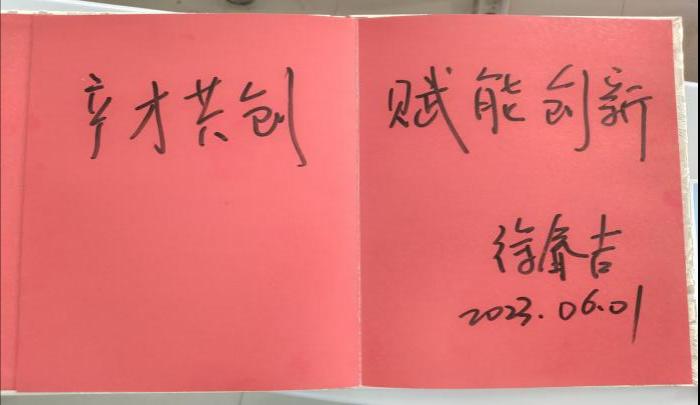 产才共创
赋能创新
徐吉
2023.06.01